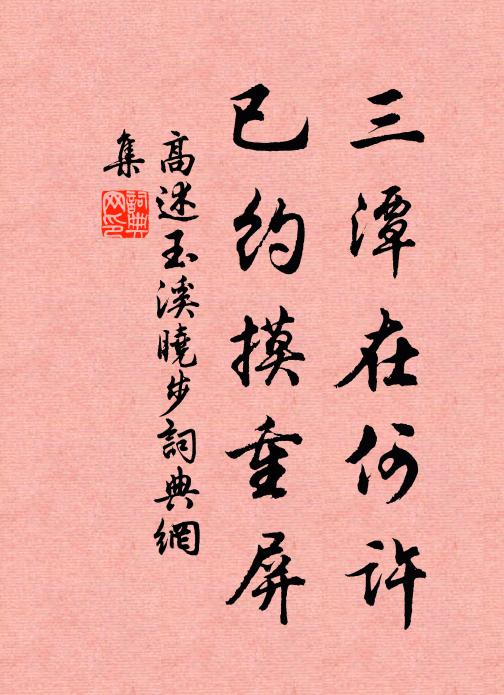 三潭在何许
已约摸重屏
高述玉溪曉步詞典網
集
詞典網印